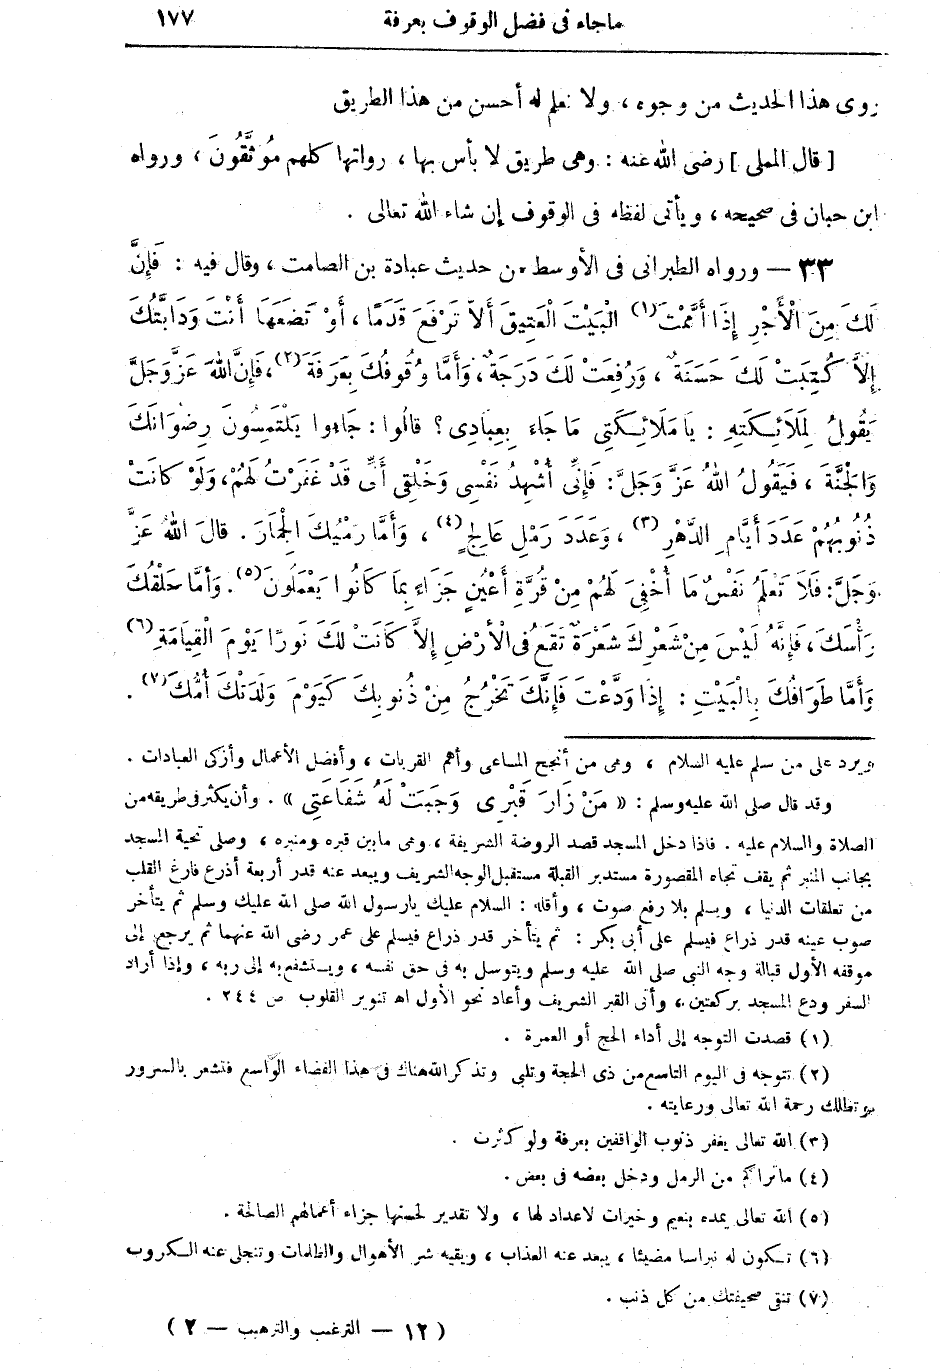 ماجاء فى فضل الوقوف بعرفة ١٧٧
روى هذا الحديث من وجوه ، ولا نعلم له أحسن من هذا الطريق
[ قال المملى ] رضى الله عنه : وهى طريق لا بأس بها ، رواتها كلهم مُوَثَّقُونَ ، ورواه
ابن حبان فى صحيحه ، ويأتى لفظه فى الوقوف إن شاء الله تعالى .
٣٣ — ورواه الطبرانى فى الأوسط من حديث عبادة بن الصامت ، وقال فيه : فَإِنَّ
لَكَ مِنَ الْأَجْرِ إِذَا أَمَّمْتَ (١) الْبَيْتَ الْعَتِيقَ أَلاَّ تَرْفَعَ قَدَمًا ، أَوْ تَضَعَهَا أَنْتَ وَدَابَّتُكَ
إِلاَّ كُتِبَتْ لَكَ حَسَنَةٌ ، وَرُفِعَتْ لَكَ دَرَجَةٌ ، وَأَمَّا وُقُوفُكَ بِعَرَفَةَ (٢) ، فَإِنَّ اللهَ عَزَّ وَجَلَّ
يَقُولُ لِمَلَائِكَتِهِ : يَا مَلَائِكَتِى مَا جَاءَ بِعِبَادِى ؟ قالُوا : جَاءُوا يَلْتَمِسُونَ رِضْوَانَكَ
وَالْجَنَّةَ ، فَيَقُولُ اللهُ عَزَّ وَجَلَّ : فَإِنِّى أُشْهِدُ نَفْسِى وَخَلْقِى أَنِّى قَدْ غَفَرْتُ لَهُمْ ، وَلَوْ كانَتْ
ذُنُوبُهُمْ عَدَدَ أَيَّامِ الدَّهْرِ (٣) ، وَعَدَدَ رَمْلِ عَالِجٍ (٤) ، وَأَمَّا رَمْيُكَ الْجِمَارَ . قالَ اللهُ عَزَّ
وَجَلَّ : فَلاَ تَعْلَمُ نَفْسٌ مَا أُخْفِىَ لَهُمْ مِنْ قُرَّةِ أَعْيُنٍ جَزَاءً بِمَا كَانُوا يَعْمَلُونَ (٥) . وَأَمَّا حَلْقُكَ
رَأْسَكَ ، فَإِنَّهُ لَيْسَ مِنْ شَعْرِكَ شَعْرَةٌ تَقَعُ فِى الْأَرْضِ إِلاَّ كَانَتْ لَكَ نُورًا يَوْمَ الْقِيَامَةِ (٦)
وَأَمَّا طَوَافُكَ بِالْبَيْتِ : إِذَا وَدَّعْتَ فَإِنَّكَ تَخْرُجُ مِنْ ذُنُوبِكَ كَيَوْمَ وَلَدَتْكَ أُمُّكَ (٧) .
ويرد على من سلم عليه السلام ، وهى من أنجح المساعى وأهم القربات ، وأفضل الأعمال وأزكى العبادات .
وقد قال صلى الله عليه وسلم : « مَنْ زَارَ قَبْرِى وَجَبَتْ لَهُ شَفَاعَتِى » . وأن يكثر فى طريقه من
الصلاة والسلام عليه . فاذا دخل المسجد قصد الروضة الشريفة ، وهى مابين قبره ومنبره ، وصلى تحية المسجد
بجانب المنبر ثم يقف تجاه المقصورة مستدبر القبلة مستقبل الوجه الشريف ويبعد عنه قدر أربعة أذرع فارغ القلب
من تعلقات الدنيا ، ويسلم بلا رفع صوت ، وأقله : السلام عليك يارسول الله صلى الله عليك وسلم ثم يتأخر
صوب عينه قدر ذراع فيسلم على أبى بكر : ثم يتأخر قدر ذراع فيسلم على عمر رضى الله عنهما ثم يرجع إلى
موقفه الأول قبالة وجه النبى صلى الله عليه وسلم ويتوسل به فى حق نفسه ، ويستشفع به إلى ربه ، وإذا أراد
السفر ودع المسجد بركعتين ، وأتى القبر الشريف وأعاد نحو الأول اه تنوير القلوب ص ٢٤٤ .
(١) قصدت التوجه إلى أداء الحج أو العمرة .
(٢) تتوجه فى اليوم التاسع من ذى الحجة وتلبى وتذكر الله هناك فى هذا الفضاء الواسع فتشعر بالسرور
وتظلك رحمة الله تعالى ورعايته .
(٣) الله تعالى يغفر ذنوب الواقفين بعرفة ولو كثرت .
(٤) ماتراكم من الرمل ودخل بعضه فى بعض .
(٥) الله تعالى يمده بنعيم وخيرات لاعداد لها ، ولا تقدير لحسنها جزاء أعمالهم الصالحة .
(٦) تكون له نبراسا مضيئا ، يبعد عنه العذاب ، ويقيه شر الأهوال والظلمات وتنجلى عنه الكروب
(٧) تنقى صحيفتك من كل ذنب .
( ١٢ — الترغيب والترهيب — ٢ )